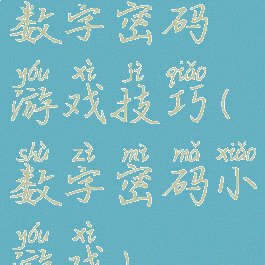 数字密码
yóu xì jì qiǎo
游戏技巧(
shù zì mì mǎ xiǎo
数字密码小
yóu xì
游戏)